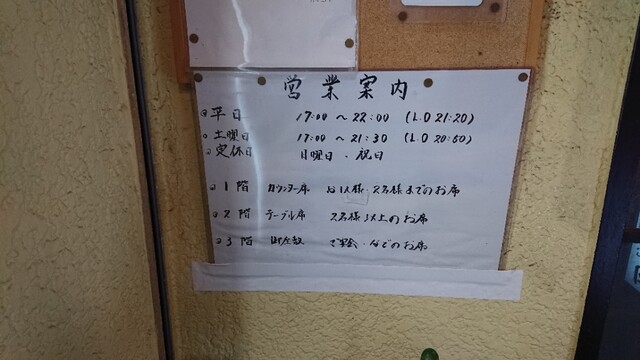 営業案内
◎平日 17:00 ～ 22:00 (L.O 21:20)
◎土曜日 17:00 ～ 21:30 (L.O 20:50)
◎定休日 日曜日・祝日
◎1階 カウンター席 お1人様 2名様までのお席
◎2階 テーブル席 2名様以上のお席
◎3階 御座敷 ご宴会・などのお席